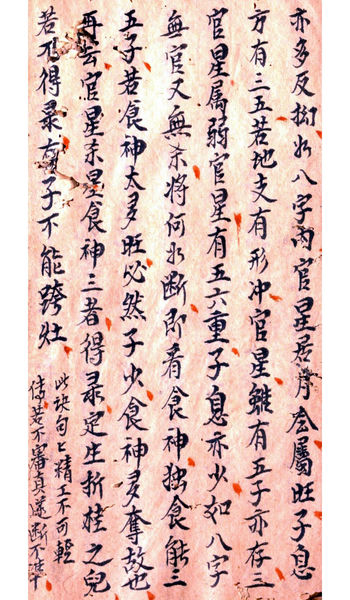 亦多反拗如八字內官星居月令屬旺子息
方有三五若地支有形冲官星雖有五子亦存三
官星属弱官星有五六重子息亦少如八字
無官又無杀將何以断即看食神独食能三
五子若食神太多旺必然子少食神多奪故也
再去官星杀星食神三者得彔定生折桂之兒
若乃得彔有子不能跨灶
此訣句匕精工不可輕
傳若不審真遂断不準